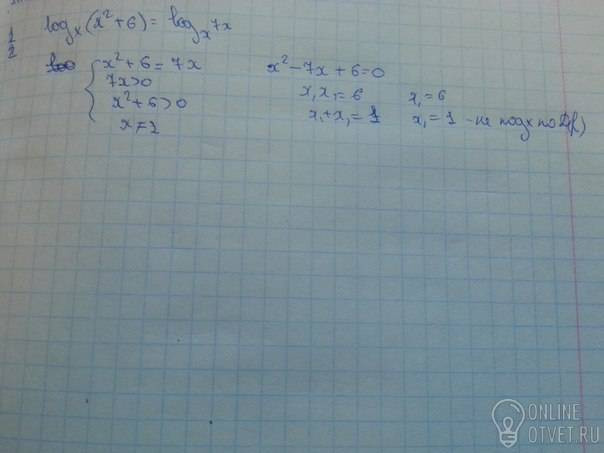 1 log_x(x²+6) = log_x 7x
2
x²+6 = 7x
7x>0
x²+6>0
x≠1
x²-7x+6=0
x₁x₁=6
x₁+x₁=1
x₁=6
x₁=1 - не подх по
ONLINE
OTVET.RU